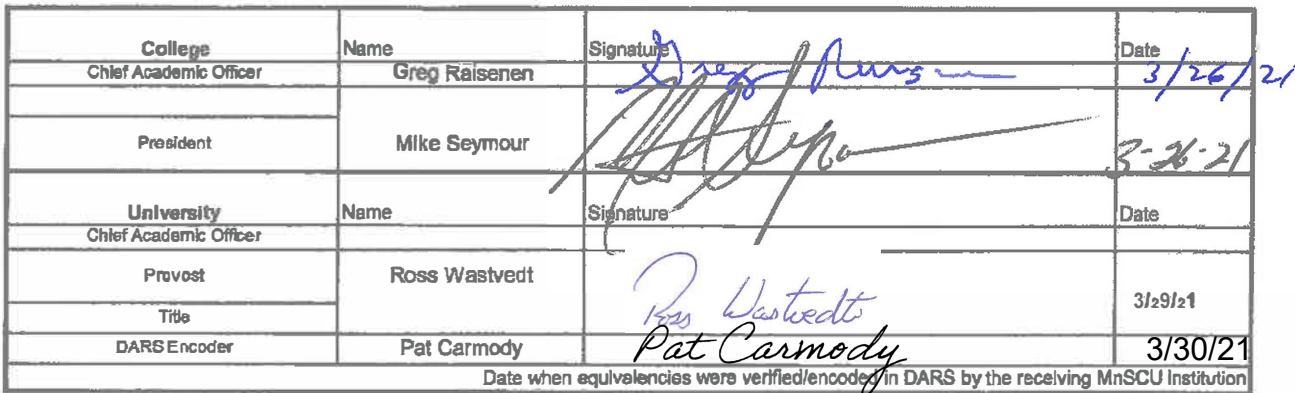 College Name Signature Date
Chief Academic Officer Greg Raisenen 3/26/21
President Mike Seymour 3-26-21
University Name Signature Date
Chief Academic Officer
Provost Ross Wastvedt Ross Wastvedt 3/29/21
Title
DARS Encoder Pat Carmody Pat Carmody 3/30/21
Date when equivalencies were verified/encoded in DARS by the receiving MnSCU Institution